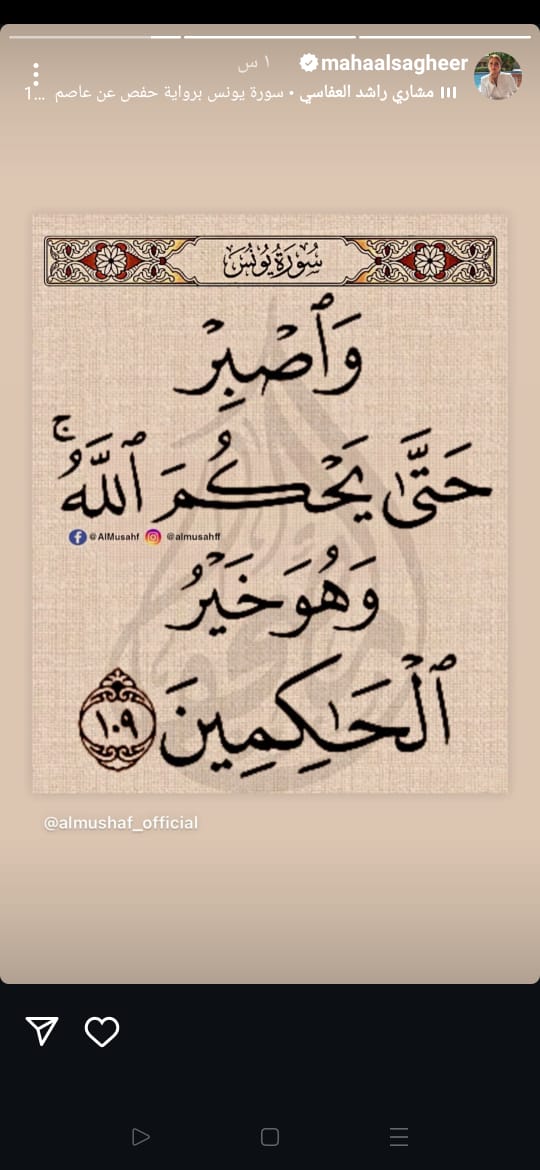 mahaalsagheer ١ س
مشاري راشد العفاسي • سورة يونس برواية حفص عن عاصم 1...
سُورَةُ يُونُسَ
وَٱصْبِرْ
حَتَّىٰ يَحْكُمَ ٱللَّهُ ۚ
@AlMusahf @almusahff
وَهُوَ خَيْرُ
ٱلْحَـٰكِمِينَ ١٠٩
@almushaf_official